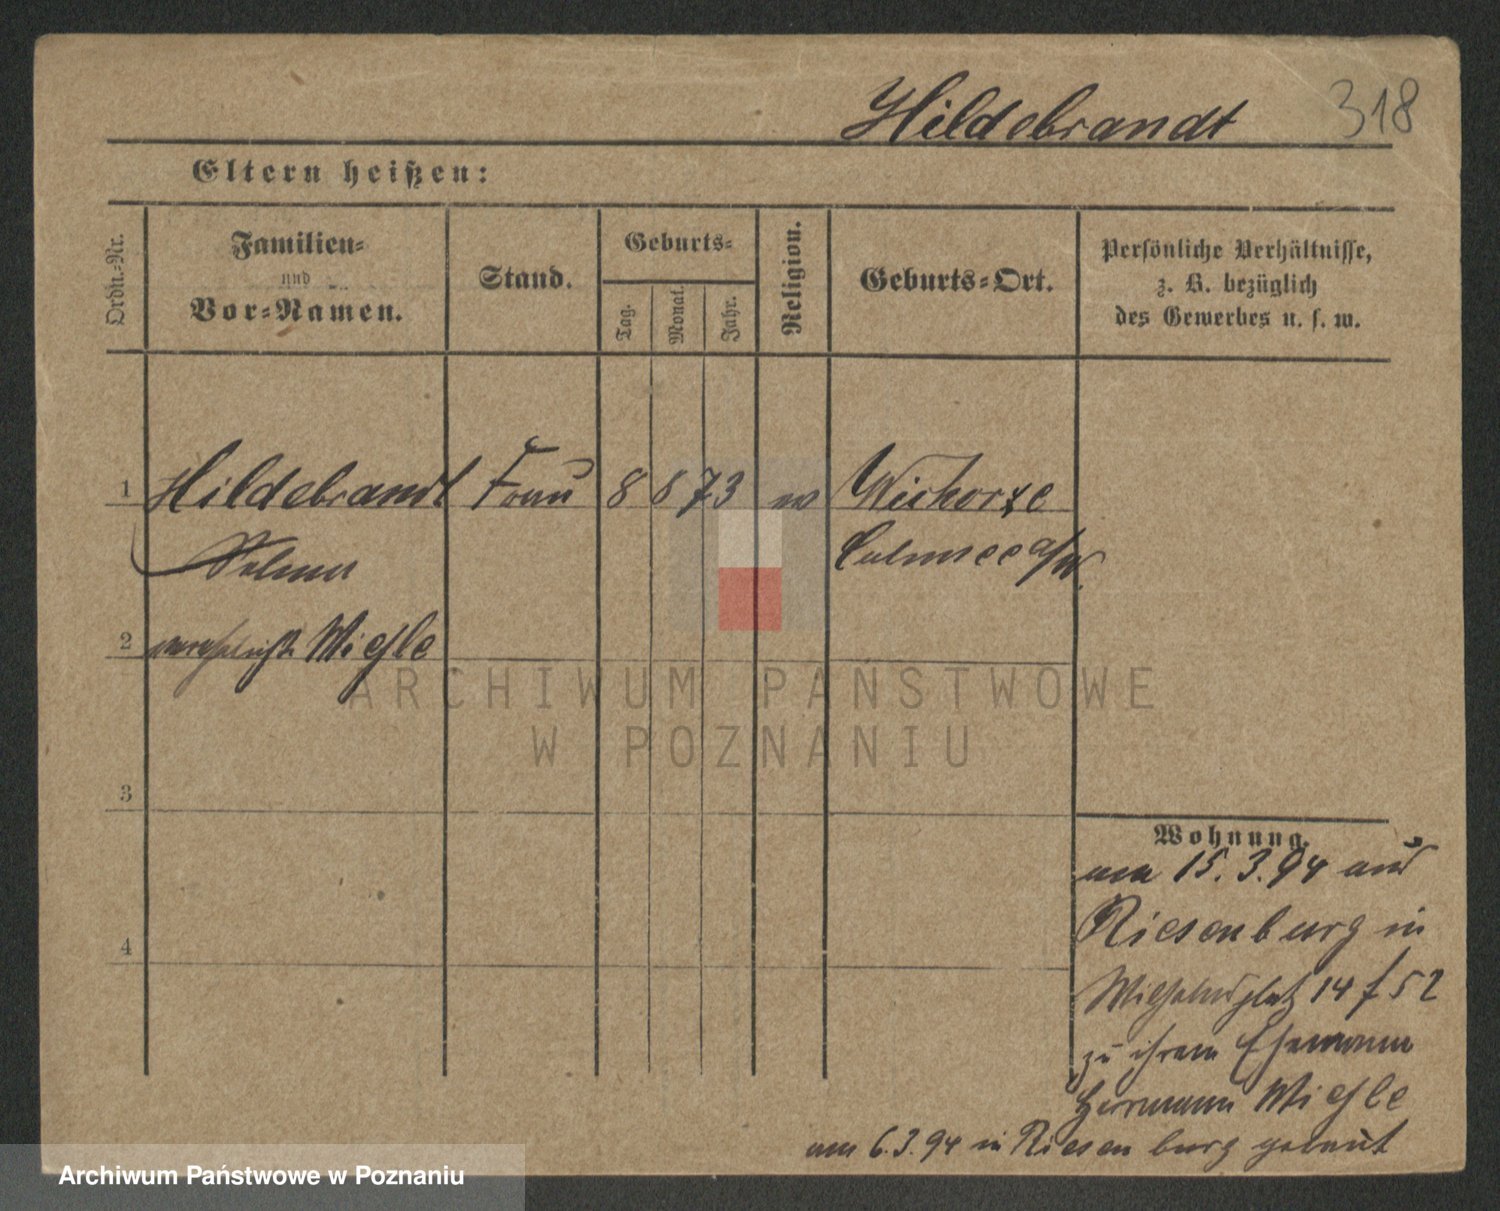 Hildebrandt 318
Eltern heißen:
Ordn.-Nr.
Familien-
und
Vor-Namen.
Stand.
Geburts-
Tag.
Monat.
Jahr.
Religion.
Geburts-Ort.
Persönliche Verhältnisse,
z. B. bezüglich
des Gewerbes u. s. w.
1 Hildebrandt Frau 8 8 73 ev
Selma Culmsee a/W.
2 verehelichte Wiehle
3
4
ARCHIWUM PAŃSTWOWE
W POZNANIU
Wohnung.
am 15.3.94 aus
Riesenburg in
14
zu ihrem Ehemann
Herrmann Wiehle
am 6.3.94 in Riesenburg getraut
Archiwum Państwowe w Poznaniu